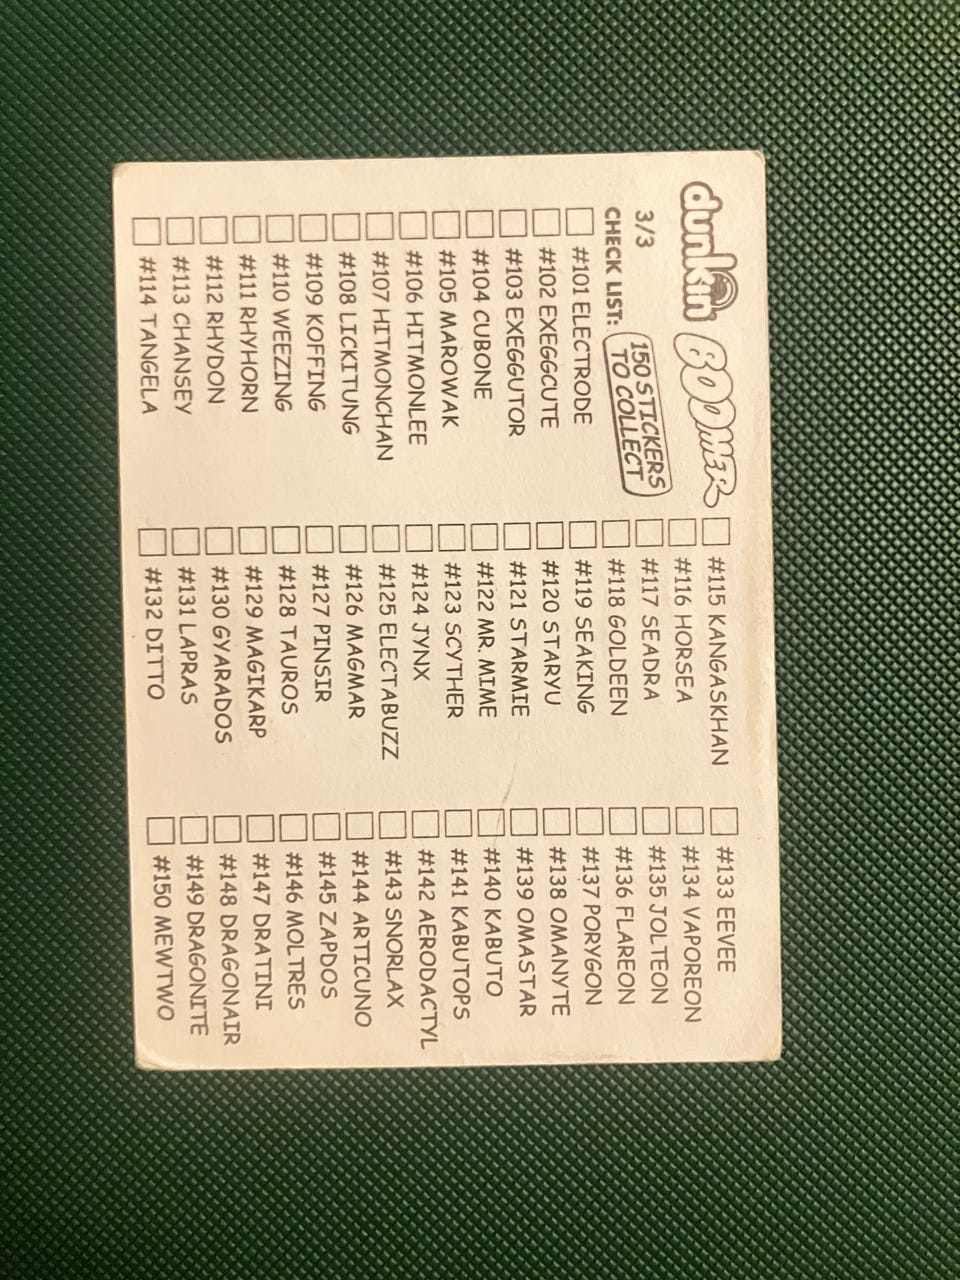 dunkin BOOMER
3/3
CHECK LIST:
150 STICKERS
TO COLLECT
#101 ELECTRODE
#102 EXEGGCUTE
#103 EXEGGUTOR
#104 CUBONE
#105 MAROWAK
#106 HITMONLEE
#107 HITMONCHAN
#108 LICKITUNG
#109 KOFFING
#110 WEEZING
#111 RHYHORN
#112 RHYDON
#113 CHANSEY
#114 TANGELA
#115 KANGASKHAN
#116 HORSEA
#117 SEADRA
#118 GOLDEEN
#119 SEAKING
#120 STARYU
#121 STARMIE
#122 MR. MIME
#123 SCYTHER
#124 JYNX
#125 ELECTABUZZ
#126 MAGMAR
#127 PINSIR
#128 TAUROS
#129 MAGIKARP
#130 GYARADOS
#131 LAPRAS
#132 DITTO
#133 EEVEE
#134 VAPOREON
#135 JOLTEON
#136 FLAREON
#137 PORYGON
#138 OMANYTE
#139 OMASTAR
#140 KABUTO
#141 KABUTOPS
#142 AERODACTYL
#143 SNORLAX
#144 ARTICUNO
#145 ZAPDOS
#146 MOLTRES
#147 DRATINI
#148 DRAGONAIR
#149 DRAGONITE
#150 MEWTWO